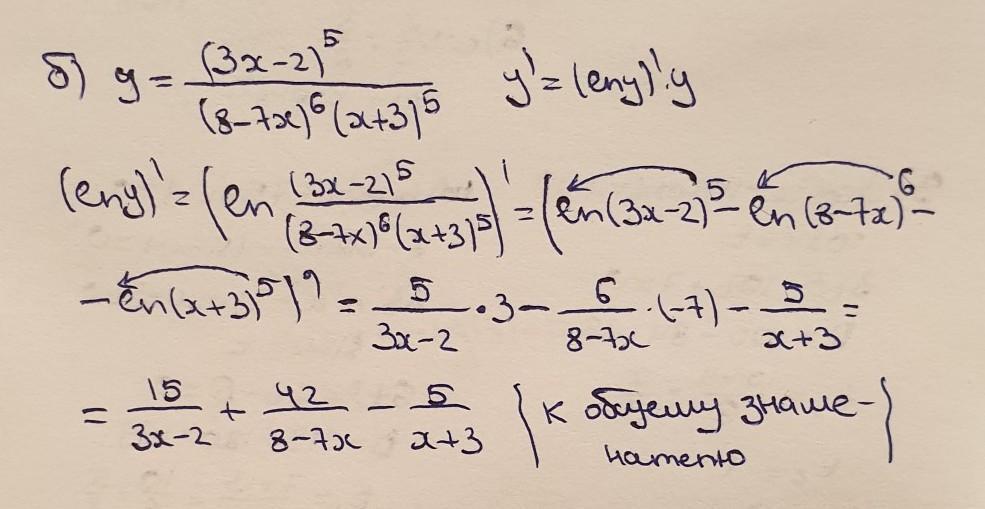 б) y = (3x-2)^5 / ((8-7x)^6 (x+3)^5) y' = (ln y)'·y
(ln y)' = (ln (3x-2)^5 / ((8-7x)^6 (x+3)^5))' = (ln(3x-2)^5 - ln(8-7x)^6 -
- ln(x+3)^5)' = 5/(3x-2) · 3 - 6/(8-7x) · (-7) - 5/(x+3) =
= 15/(3x-2) + 42/(8-7x) - 5/(x+3) { к общему знаме-
нателю }